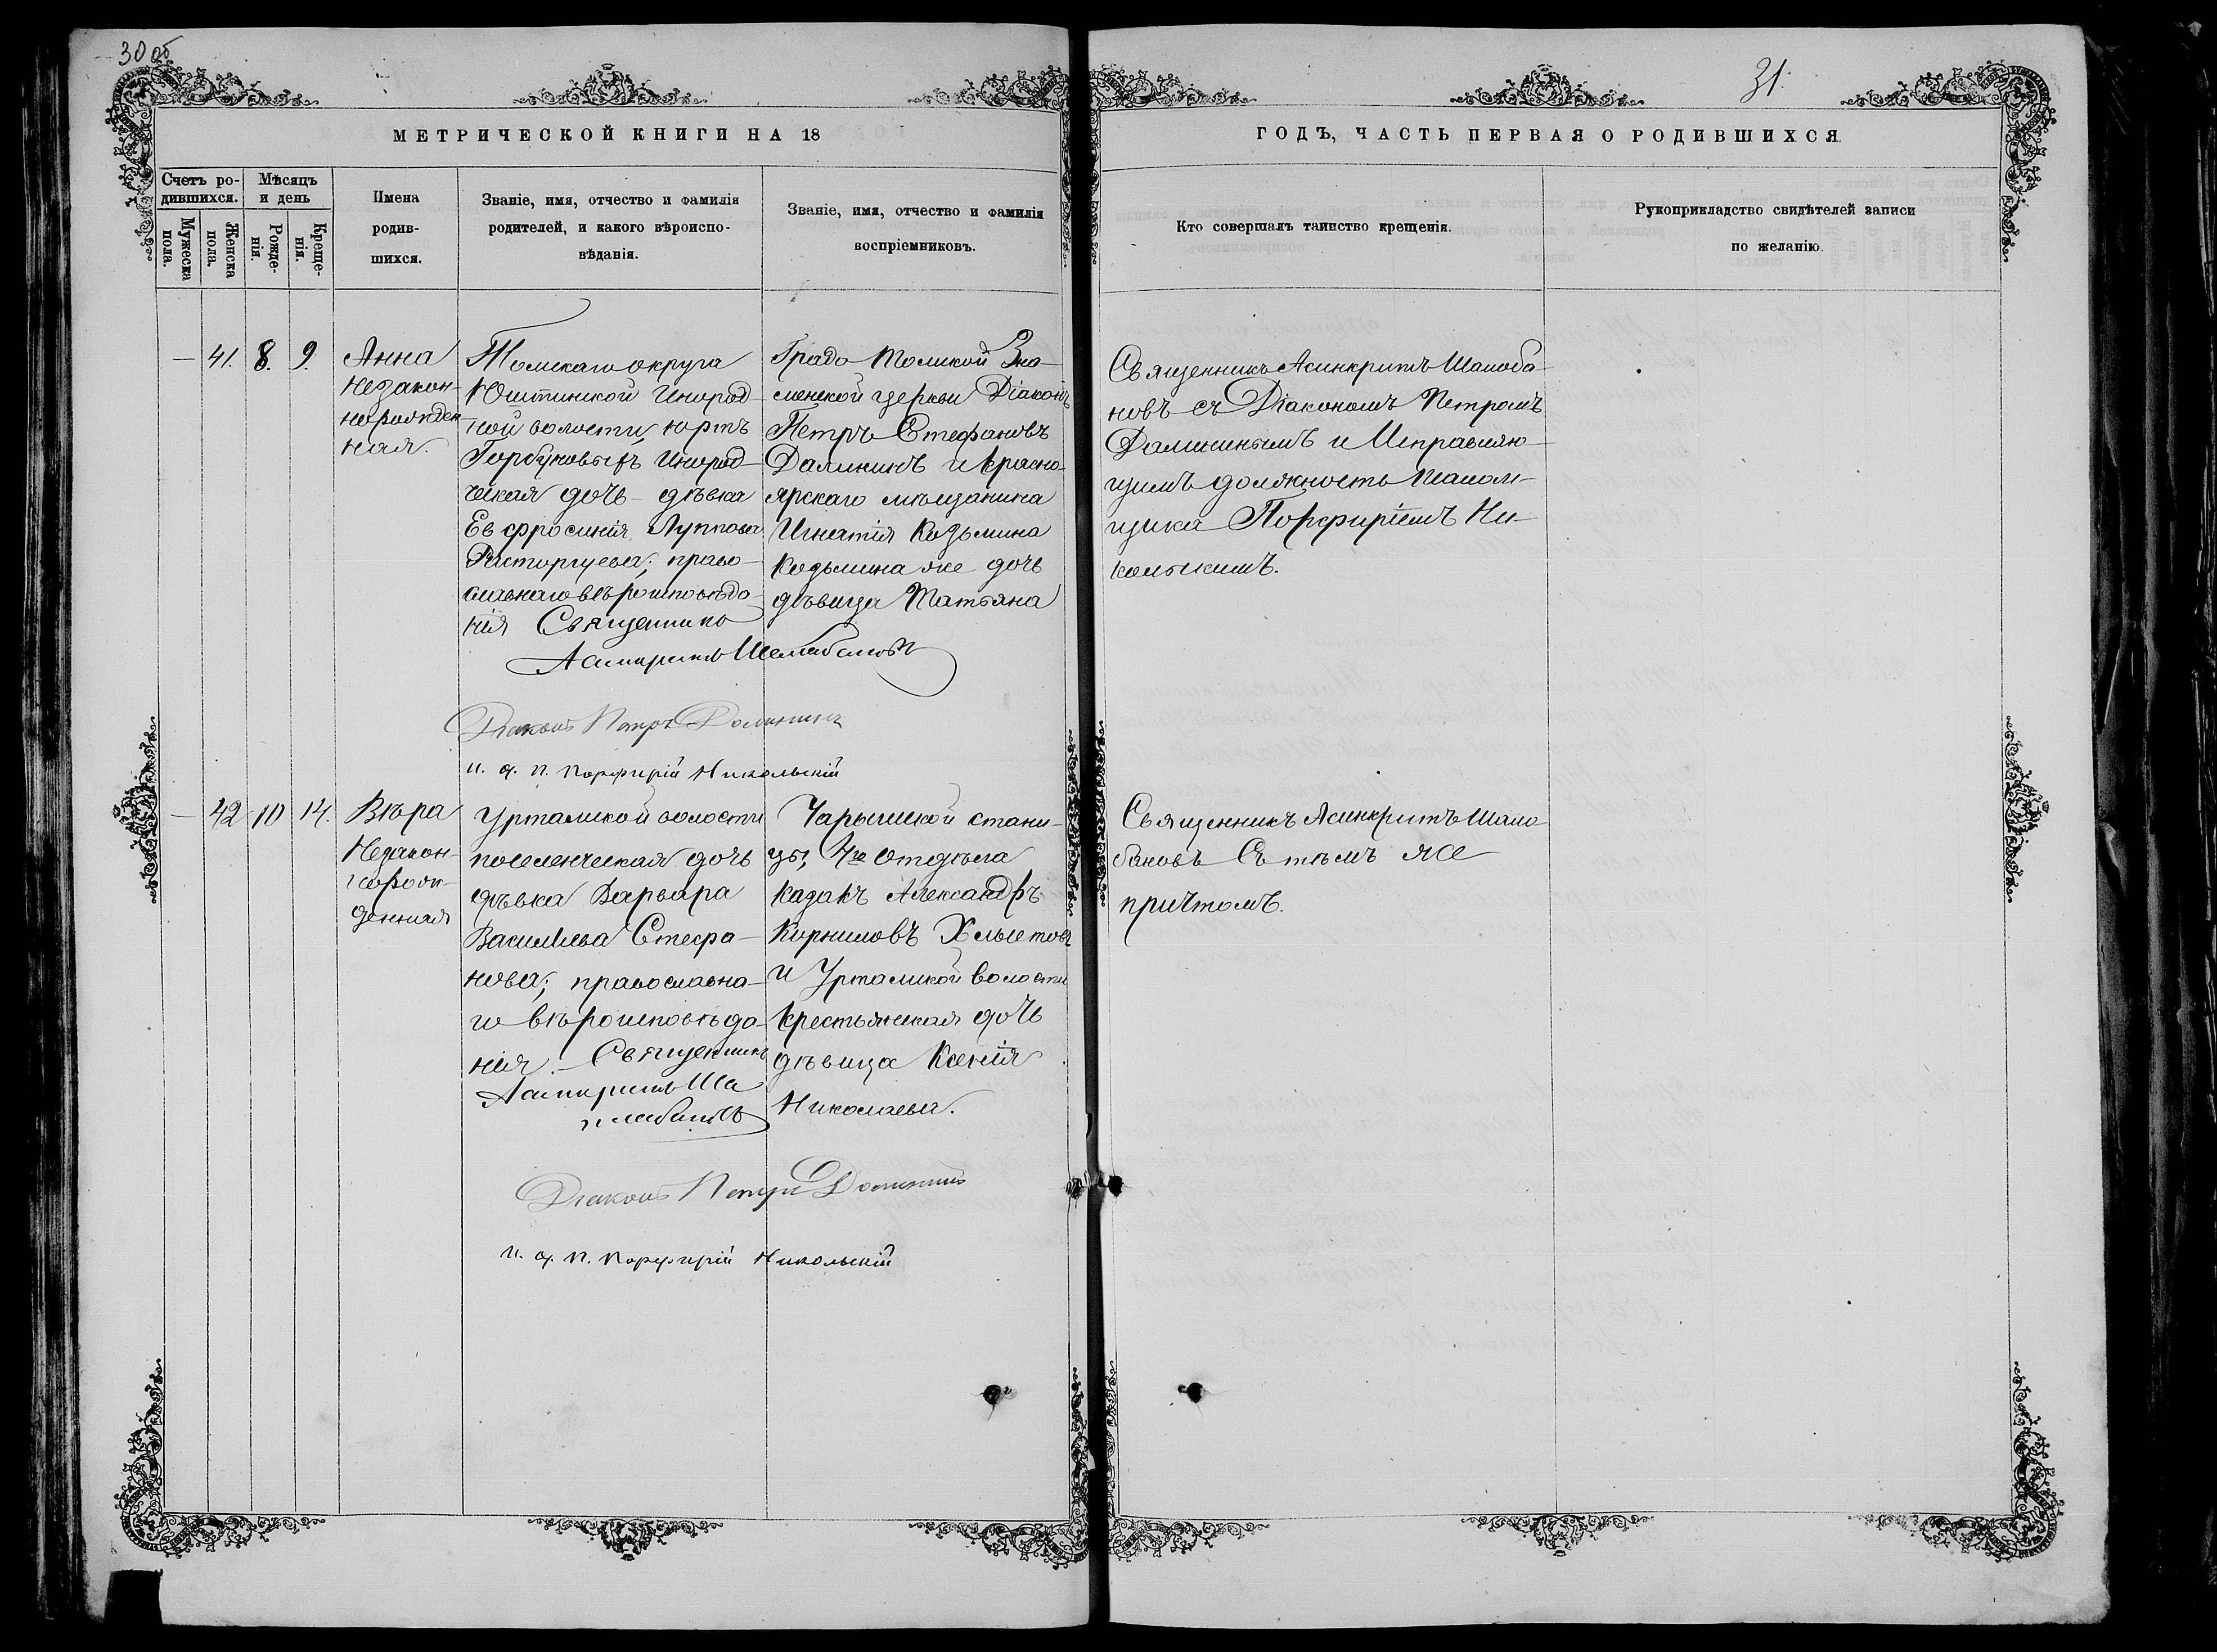 30 об
31.
МЕТРИЧЕСКОЙ КНИГИ НА 18
ГОДЪ, ЧАСТЬ ПЕРВАЯ О РОДИВШИХСЯ
Счетъ ро-
дившихся.
Мужеска
пола.
Женска
пола.
Мѣсяцъ
и день
Рожде-
нія.
Креще-
нія.
Имена
родив-
шихся.
Званіе, имя, отчество и фамилія
родителей, и какого вѣроиспо-
вѣданія.
Званіе, имя, отчество и фамилія
воспріемниковъ.
Кто совершалъ таинство крещенія.
Рукоприкладство свидѣтелей записи
по желанію.
— 41. 8. 9.
Анна
Незакон-
норожден
ная.
Томскаго округа
Юштинской Инород-
ной волости, юртъ
Горбуновыхъ Инород-
ческая дочь-дѣвка
Евфросинія Луппова
Расторгуева; право-
славнаго вѣроисповѣда-
нія Священникъ
Асинкритъ Шалобановъ
Діаконъ Петръ Далининъ
и. д. п. Порфирій Никольскій
Градо-Томской Зна-
менской церкви Діаконъ
Петръ Стефановъ
Далининъ и Красно-
ярскаго мѣщанина
Игнатія Козьмина
Козьмина же дочь
дѣвица Татьяна
Священникъ Асинкритъ Шалоба-
новъ съ Діакономъ Петромъ
Далининымъ и Исправляю-
щимъ должность Псалом-
щика Порфиріемъ Ни-
кольскимъ.
— 42 10 14.
Вѣра
Незакон-
норож-
денная
Уртамской волости
поселенческая дочь
дѣвка Варвара
Васильева Стефа-
нова; православна-
го вѣроисповѣда-
нія. Священникъ
Асинкритъ Ша
лобановъ
Діаконъ Петръ Далининъ
и. д. п. Порфирій Никольскій
Чарышской стани-
цы, 4го Отдѣла
казакъ Александръ
Корниловъ Хлыстовъ
и Уртамской волости
крестьянская дочь
дѣвица Ксенія
Николаева.
Священникъ Асинкритъ Шало-
бановъ Съ тѣмъ же
причтомъ.